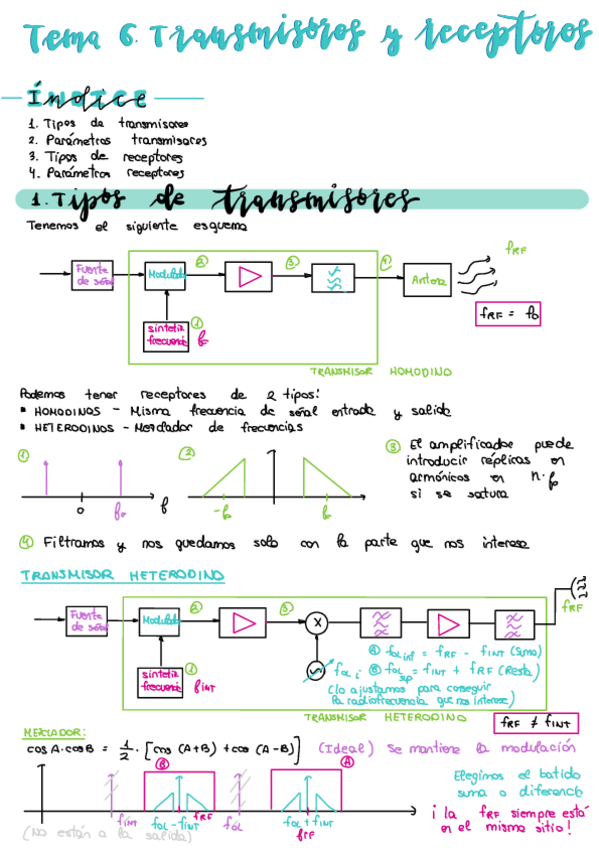 Tema 6. Transmisores y receptores
Índice
1. Tipos de transmisores
2. Parámetros transmisores
3. Tipos de receptores
4. Parámetros receptores
1. Tipos de transmisores
Tenemos el siguiente esquema
Fuente de señal
Modulador
2
3
4
Antena
fRF
fRF = fo
sintetiz frecuencia
1
fo
TRANSMISOR HOMODINO
Podemos tener receptores de 2 tipos:
• HOMODINOS - Misma frecuencia de señal entrada y salida
• HETERODINOS - Mezclador de frecuencias
1
0
fo
f
2
-fo
fo
3 El amplificador puede
introducir réplicas en
armónicos en n·fo
si se satura
4 Filtramos y nos quedamos solo con la parte que nos interese
TRANSMISOR HETERODINO
Fuente de señal
Modulador
2
3
X
fRF
sintetiz frecuencia
1
fINT
fOL i
A fOL inf = fRF - fINT (Suma)
B fOL sup = fINT + fRF (Resta)
(lo ajustamos para conseguir
la radiofrecuencia que nos interese)
TRANSMISOR HETERODINO
fRF ≠ fINT
MEZCLADOR:
cosA·cosB = 1/2 · [cos (A+B) + cos (A-B)] (Ideal) Se mantiene la modulación
B
A
fINT
fOL - fINT
fRF
fOL
fOL + fINT
fRF
(No están a la salida)
Elegimos el batido
suma o diferencia
¡ la fRF siempre está
en el mismo sitio!